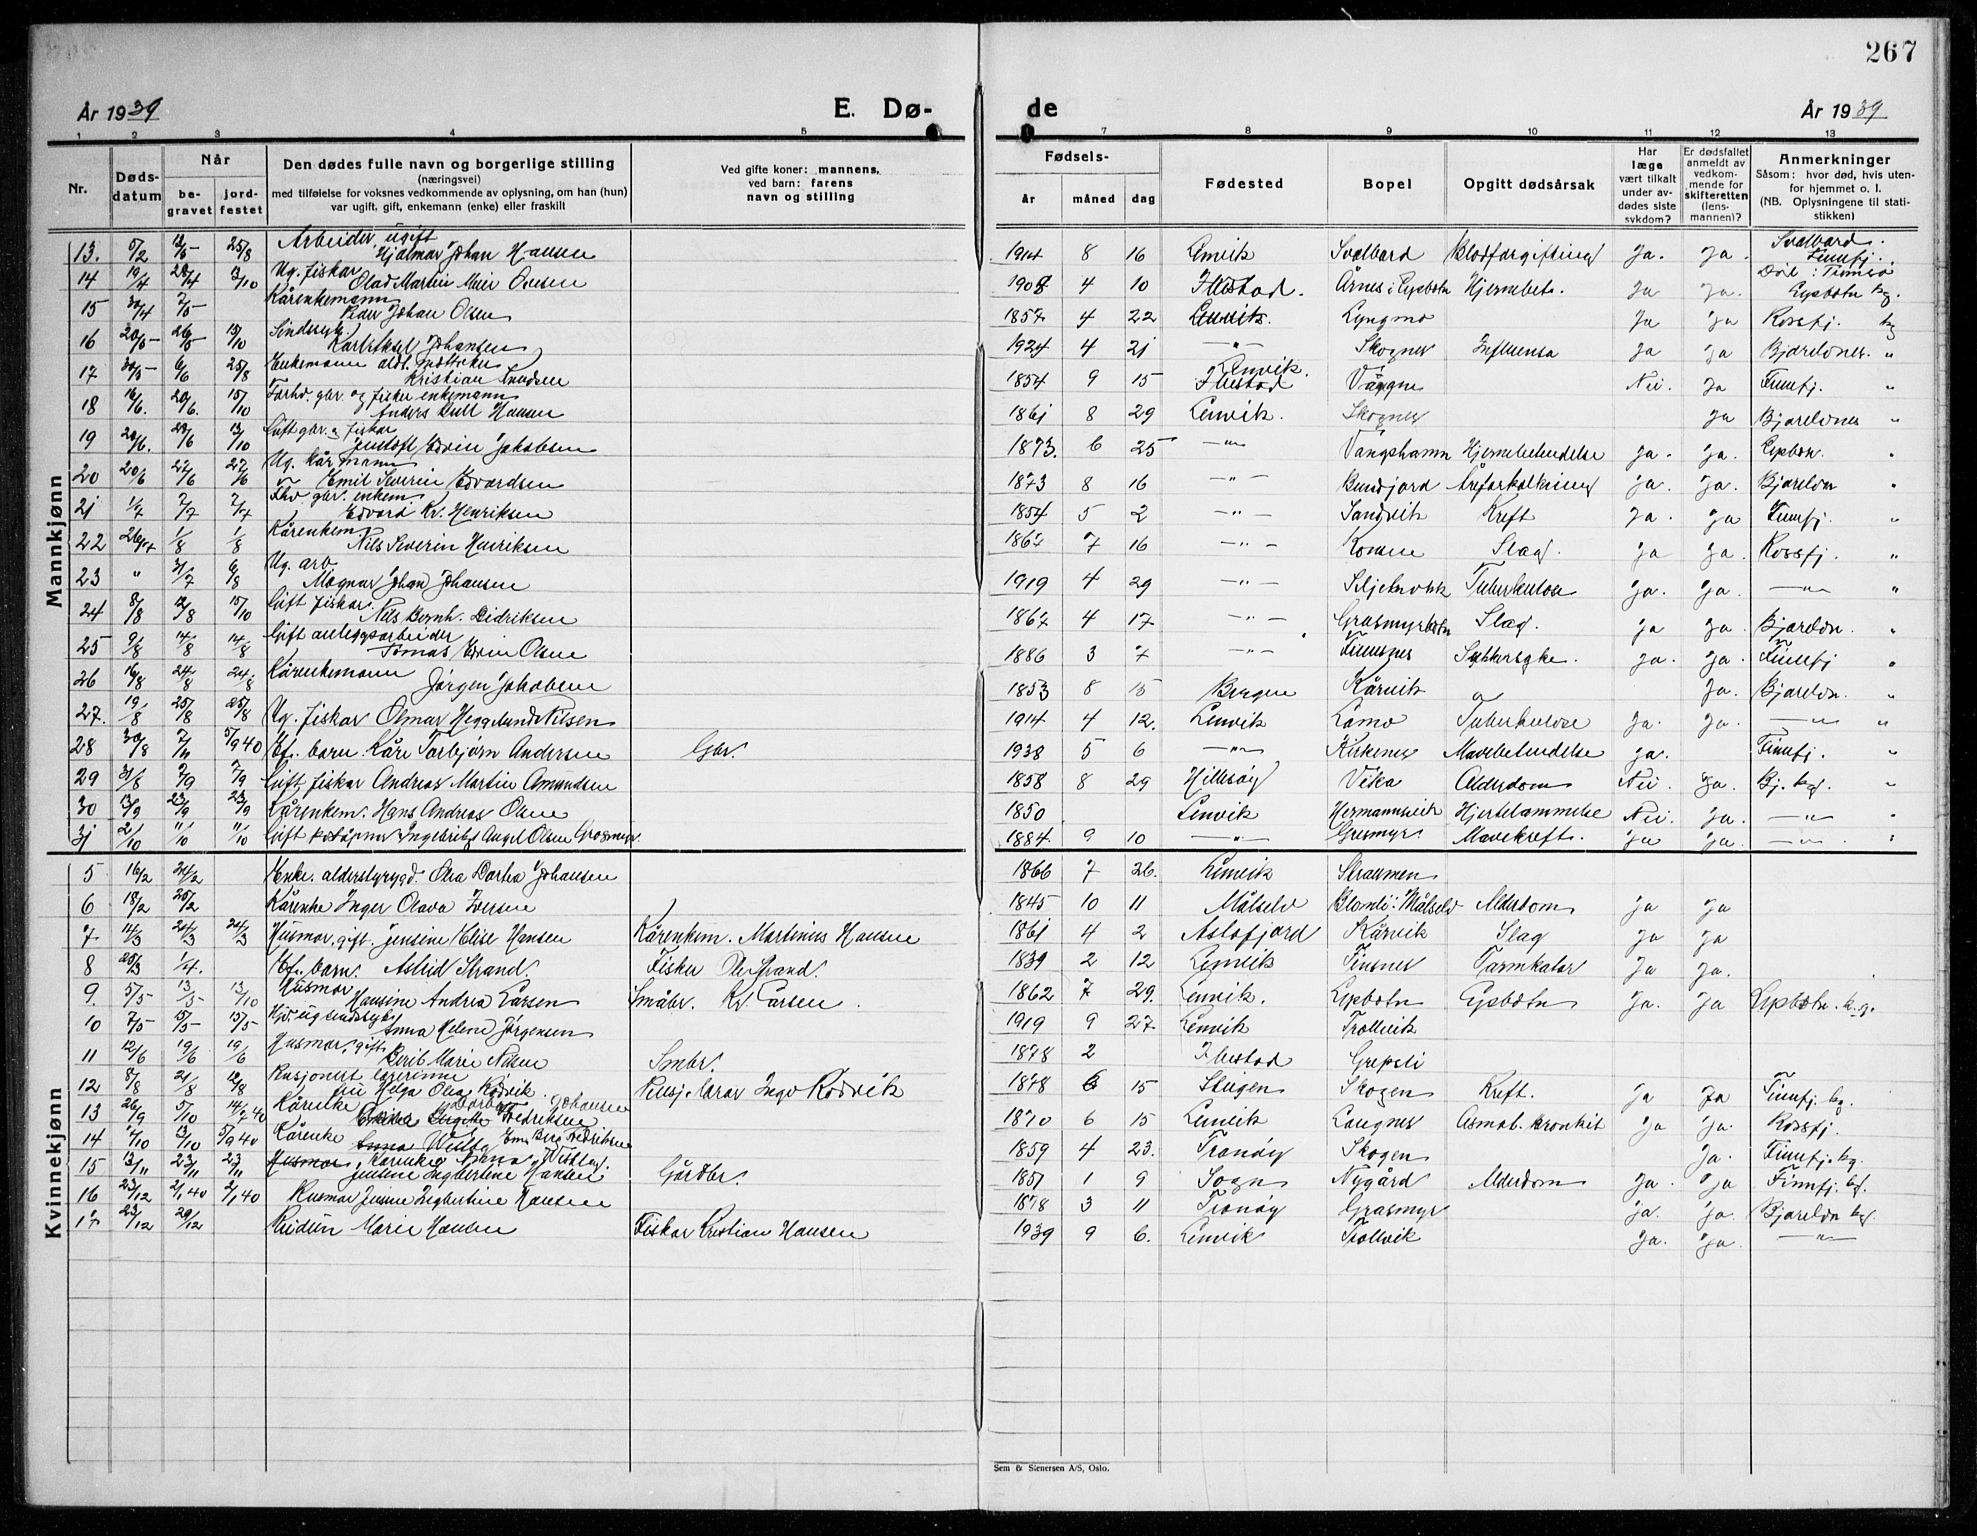 267
År 1939
E. Dø-
de
År 1939
1 2 3 4 5 7 8 9 10 11 12 13
Nr.
Døds-
datum
Når
be-
gravet
jord-
festet
Den dødes fulle navn og borgerlige stilling
(næringsvei)
med tilføielse for voksnes vedkommende av oplysning, om han (hun)
var ugift, gift, enkemann (enke) eller fraskilt
Ved gifte koner: mannens,
ved barn: farens
navn og stilling
Fødsels-
år måned dag
Fødested
Bopel
Opgitt dødsårsak
Har
læge
vært tilkalt
under av-
dødes siste
sykdom?
Er dødsfallet
anmeldt av
vedkom-
mende for
skifteretten
(lens-
mannen)?
Anmerkninger
Såsom: hvor død, hvis uten-
for hjemmet o. l.
(NB. Oplysningene til stati-
stikken)
Mannkjønn
13. 5/2 25/8 Arbeider, ugift Hjalmar Johan Hansen 1914 8 16 Lenvik Svalbard Blodforgiftning Ja. Ja. Svalbard. Finnfj.
14 19/4 28/4 13/10 Ug. fiskar Olad Martin Meier Ovesen 1908 4 10 Ibestad. Årnes i Gysbotn Hjernebet. Ja Ja. Død i Tromsø Gysbotn kg.
15 30/4 7/5 Kårenkemann Peder Johan Olsen 1857 4 22 Lenvik. Lyngmo Ja Ja Rossfj. kg
16 20/5 26/5 13/10 Sindssyk. Karl Johansen 1924 4 21 -"- Skognes Influensa Ja Ja Bjorelvnes. "
17 30/5 6/6 25/8 Enkemann Kristian Knudsen 1854 9 15 Lenvik. Ibestad Vaggne Nei Ja Finnfj. "
18 16/6. 20/6. 15/10 Forhv. gbr. og fisker enkemann Anders Hansen 1861 8 29 Lenvik. Skognes Ja Bjorelvnes "
19 20/6. 29/6 13/10 Gift gbr. og fiskar Edvin Jakobsen 1873. 6 25 -"- Vangshamn Hjernebetendelse Ja. Ja. Gysbotn. "
20 20/6 27/6 27/6 Ug. kårmann Emil Severin Edvardsen 1873 8 16 -"- Bundfjord Åreforkalkning Ja. Ja. Bjorelvn "
21 1/7 7/7 7/7 Fhv gbr. enkem. Edvard Kr. Henriksen 1854 5 2 -"- Sandvik Kreft Ja. Ja Finnfj. "
22 26/7 1/8 1/8 Kårenkem. Nils Severin Henriksen 1867 7 16 -"- Slag. Ja Ja. Rossfj. "
23 " 31/7 6/8 Ug. arb. Magnar Johan Johansen 1919 4 29 -"- Tuberkulose Ja. Ja. -"- "
24 8/8 12/8 15/10 Gift fiskar. Nils Bernh. Didriksen 1867 4 17 -"- Grasmyrbotn Slag. Ja Ja. Bjorelvn. "
25 9/8 14/8 14/8 Gift anleggsarbeider Tomas Edvin Olsen 1886 3 7 -"- Finnsnes Sukkersyke. Ja. Ja. Finnfj "
26 16/8 24/8 24/8 Kårenkemann Jørgen Jakobsen 1853 8 15 Bergen Kårvik Ja. Bjorelvn. "
27. 19/8 25/8 25/8 Ug. fiskar Olmar Heggelund Nilsen 1914 4 12. Lenvik Lømo Tuberkulose Ja. Ja. -"- "
28 30/8 5/9 40 Ef. barn. Kåre Torbjørn Andersen Gbr. 1938 5 6 -"- Kirkenes Mavebetendelse ja. Finnfj. "
29 31/8 7/9 7/9 Gift fiskar Andreas Martin Amundsen 1858 8 29 Hillesøy Vika Alderdom Nei. Ja. Bj. kg. "
30 13/9 23/9 23/9 Kårenkem. Hans Andreas Olsen 1850 Lenvik Hermannsvik Hjertelammelse Nei. Ja. -"- "
31 2/10 11/10 11/10 Gift Ingebrikt Angel Olsen Grasmyr. 1884. 9 10 -"- Grasmyr Mavekreft. Ja Ja. -"- "
Kvinnekjønn
5 16/2 24/2 Enke. alderstrygd. Olea Dortea Johansen 1866 7 26. Lenvik Straumen
6 18/2 25/2 Kårenke Inger Olava Iversen 1845 10 11 Målselv Blomli i Målselv Alderdom Ja Ja
7 14/3 24/3 24/3 Husmor, gift. Jensine Elise Hansen Kårenkem. Martinius Hansen 1861 4 2 Astafjord Kårvik Slag Ja Ja
8 25/3 1/4. Ef. barn. Astrid Strand. Fisker Ole Strand. 1839 2 12 Lenvik Finsnes Tarmkatar Ja Ja.
9. 5/5 13/5 13/10 Husmor Hansine Andrea Larsen Småbr. Kr. Larsen. 1862 7 29. Lenvik. Gysbotn Gysbotn Ja. Ja Gysbotn. kg.
10 7/5 15/5 15/5 ug sindssyk Anna Helene Jørgensen 1919 9 27. Lenvik Trollvik
11 12/6 19/6 19/6 Husmor, gift Berit Marie Nilsen Smbr. 1878 2 Ibestad Grepsli
12 8/8 21/8 12/8 Pensjonert lærerinne Helga Olea Rødvik. Pensj. lærar Ingv Rødvik 1878 6 15 Steigen Skogen Kreft. Ja Ja Finnfj. kg.
13 26/9 5/10 14/7 40 Kårenke Dorbert Johansen Birgitte Fredriksen 1870 6 15 Lenvik Laugnes Asmab. bronkit Ja Ja. Rossfj.
14 4/10 13/10 5/9 40 Kårenke Anna Berg Fredriksen 1859 4 23. Tranøy Skogen Ja. Finnfj. kg.
15 13/11 23/11 23/11 Husmor, Kårenke Anna Jensine Ingbertine Hansen Gårdbr. 1851 1 9 Sogn Nygård Alderdom Ja. Ja Finnfj. kg.
16 23/12 2/1 40 2/1 40 Husmor Jensine Ingbertine Hansen 1878 3 11 Tranøy Grasmyr Ja. Ja. Bjorelvn kg.
17 23/12 29/12 Reidun Marie Hansen Fiskar Kristian Hansen 1939 9 6. Lenvik Trollvik Ja. Ja. -"-
Sem & Stenersen A/S, Oslo.